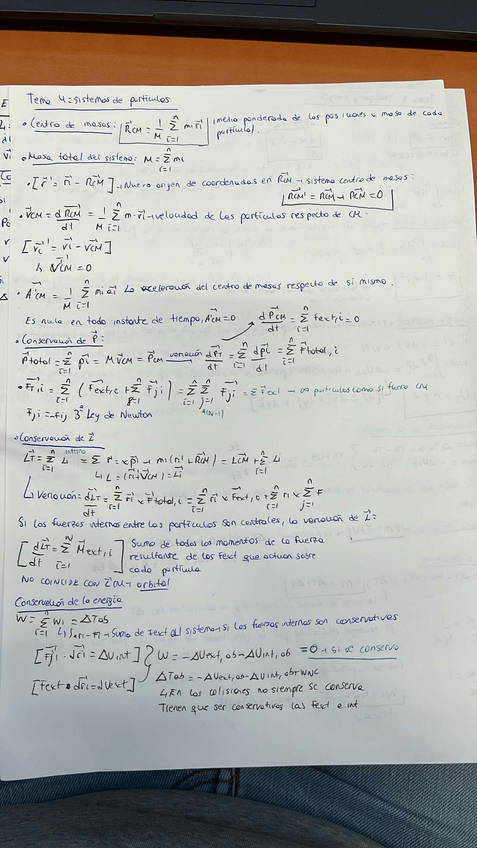 Tema 4: sistemas de partículas
• Centro de masas: R⃗cm = 1/M Σ(i=1,n) mi r⃗i | (media ponderada de las posiciones y masa de cada
partícula).
• Masa total del sistema: M = Σ(i=1,n) mi
• [r⃗' = r⃗i - R⃗cm] → Nuevo origen de coordenadas en R⃗cm → sistema centro de masas:
R⃗cm' = R⃗cm - R⃗cm = 0
• V⃗cm = dR⃗cm/dt = 1/M Σ(i=1,n) mi·v⃗i → velocidad de las partículas respecto de CM.
[v⃗i' = v⃗i - v⃗cm]
↳ V⃗'cm = 0
• A⃗'cm = 1/M Σ(i=1,n) mi a⃗i ↳ aceleración del centro de masas respecto de si mismo.
Es nula en todo instante de tiempo, A⃗'cm = 0
dP⃗cm/dt = Σ(i=1,n) Fext,i = 0
• Conservación de P⃗:
P⃗total = Σ(i=1,n) p⃗i = M V⃗cm = P⃗cm variación dP⃗T/dt = Σ(i=1,n) dp⃗i/dt = Σ(i=1,n) F⃗total,i
Fji = -Fij 3ª Ley de Newton
• Conservación de L⃗
Si las fuerzas internas entre las partículas son centrales, la variación de L⃗:
[dL⃗T/dt = Σ(i=1,N) M⃗ext,i] Suma de todos los momentos de la fuerza
resultante de las Fext que actúan sobre
cada partícula
NO COINCIDE CON L⃗CM → orbital
Conservación de la energía
W = Σ(i=1,n) Wi = ΔTab
Suma de Fext al sistema → Si las fuerzas internas son conservativas
[F⃗ji · dr⃗i = ΔUint] W = -ΔUext,ab - ΔUint,ab = 0 → si se conserva
[Fext · dr⃗i = dUext] ΔTab = -ΔUext,ab - ΔUint,ab + WNC
↳ En las colisiones no siempre se conserva
Tienen que ser conservativas las Fext e int